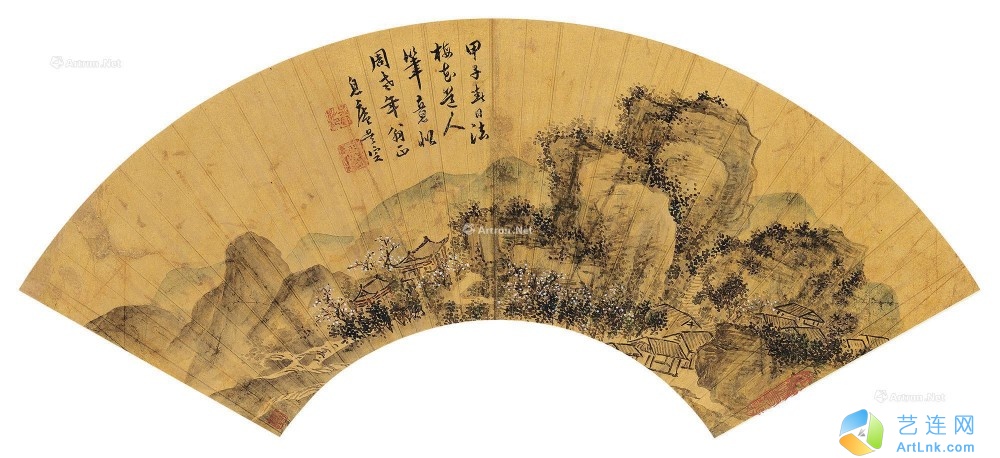 甲子春日法
梅花道人
筆意似
周老年翁正
息庵
Artron.Net
Artron.Net
Artron.Net
艺连网
ArtLnk.com